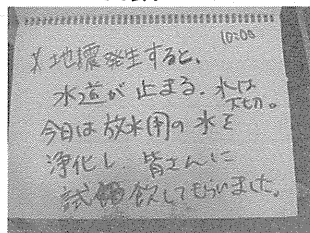 10:00
※地震発生すると、
水道が止まる。水は大切。
今日は放水用の水を
浄化し、皆さんに
試飲してもらいました。